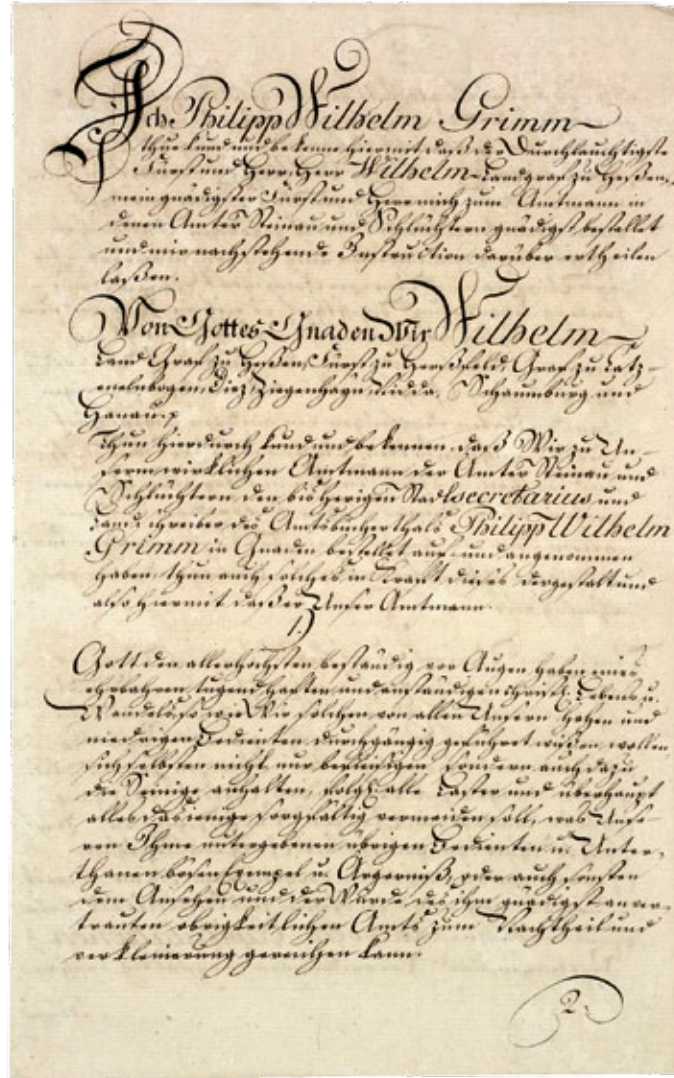 Ich Philipp Wilhelm Grimm
thue kund und bekenne hiermit daß der Durchlauchtigste
Fürst und Herr, Herr Wilhelm Landgraf zu Heßen,
mein gnädigster Fürst und Herr mich zum Amtmann in
denen Amter Steinau und Schlüchtern gnädigst bestellet
und mir nachstehende Instruction darüber ertheilen
laßen.
Von Gottes Gnaden Wir Wilhelm
Land Graf zu Heßen, Fürst zu Herßfeld, Graf zu Catz-
enelnbogen, Diez, Ziegenhayn, Nidda, Schaumburg und
Hanau p
Thun hierdurch kund und bekennen, daß Wir zu Un-
serm wirklichen Amtmann der Amter Steinau und
Schlüchtern den bisherigen Stadtsecretarius und
Landschreiber des Amts Bücherthals Philipp Wilhelm
Grimm in Gnaden bestellet auf- und angenommen
haben, thun auch solches in Kraft dieses dergestalt und
also hiermit daß er Unser Amtmann.
1.)
Gott den allerhöchsten beständig vor Augen haben eines
ehrbahren, tugendhaften und anständigen christl. Lebens u.
Wandels, so wie Wir solchen von allen Unsern hohen und
niedrigen Bedienten durchgängig geführet wißen wollen,
sich selbsten nicht nur befleißigen sondern auch dazu
die Seinige anhalten, folgl. alle Laster und überhaupt
alles dasjenige sorgfältig vermeiden soll, was Unse-
ren Ihme untergebenen übrigen Bedienten u. Unter-
thanen bösen Exempel u. Argerniß, oder auch sonsten
dem Ansehen und der Würde des ihm gnädigst anver-
trauten obrigkeitlichen Amts zum Nachtheil und
verkleinerung gereichen kann.
2